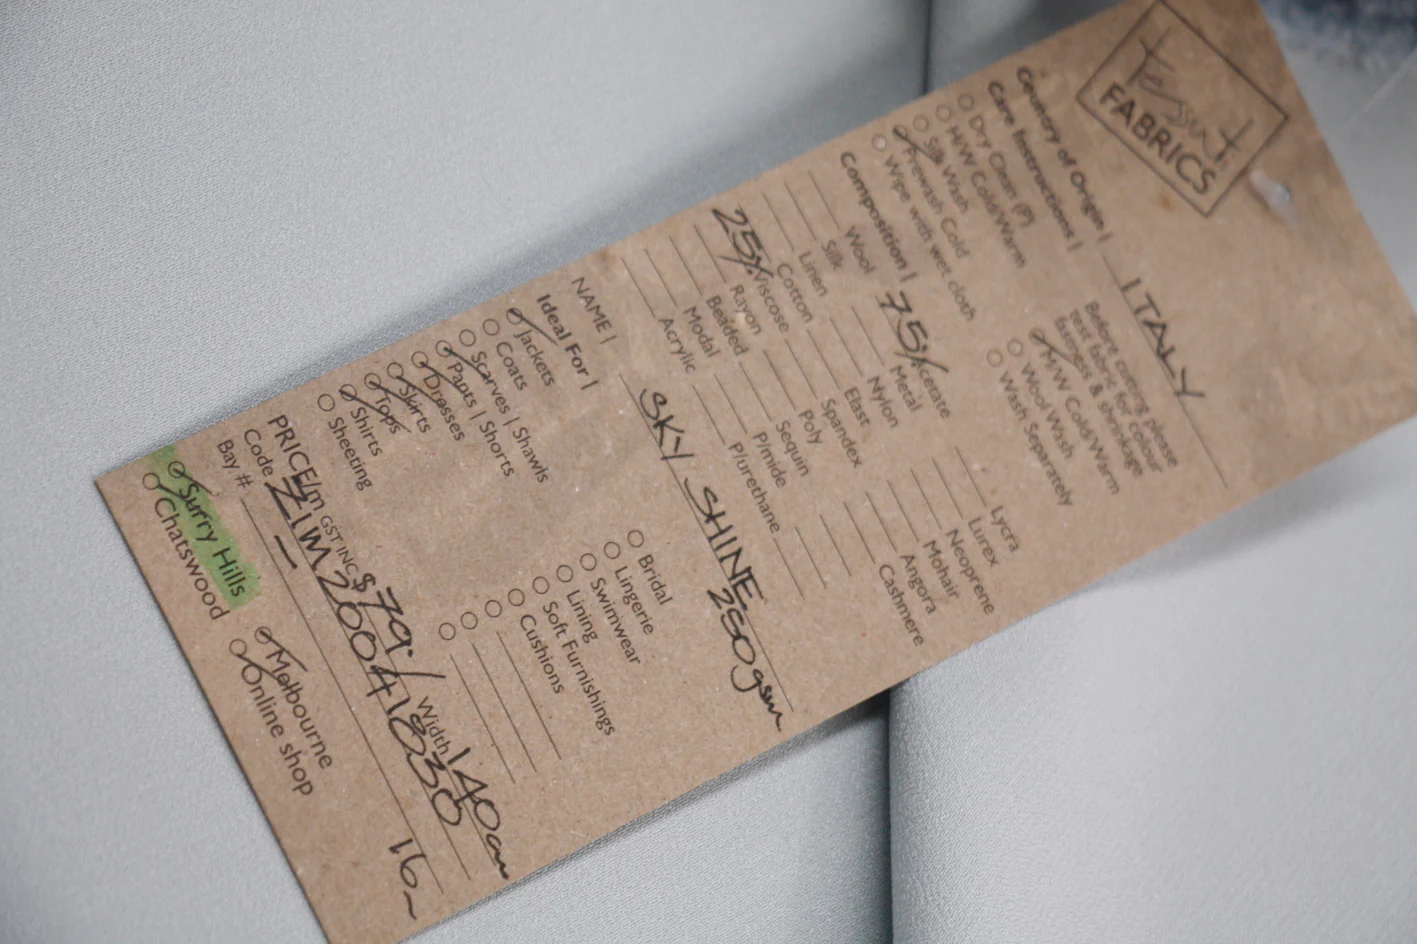 Tessuti
FABRICS
Country of Origin | ITALY
Care Instructions |
Dry Clean (P)
H/W Cold/Warm
Silk Wash
Prewash Cold
Wipe with wet cloth
Before cutting please
test fabric for colour
fastness & shrinkage
M/W Cold/Warm
Wool Wash
Wash Separately
Composition |
Wool
Silk
Linen
Cotton
25% Viscose
Rayon
Beaded
Modal
Acrylic
75% Acetate
Metal
Nylon
Elast
Spandex
Poly
Sequin
P/mide
P/urethane
Lycra
Lurex
Neoprene
Mohair
Angora
Cashmere
NAME | SKY SHINE 250gsm
Ideal For |
Jackets
Coats
Scarves | Shawls
Pants | Shorts
Dresses
Skirts
Tops
Shirts
Sheeting
Bridal
Lingerie
Swimwear
Lining
Soft Furnishings
Cushions
PRICE/m GST INC $79./ Width 140cm
Code ZIM20041830
Bay # – 16~
Surry Hills
Chatswood
Melbourne
Online shop